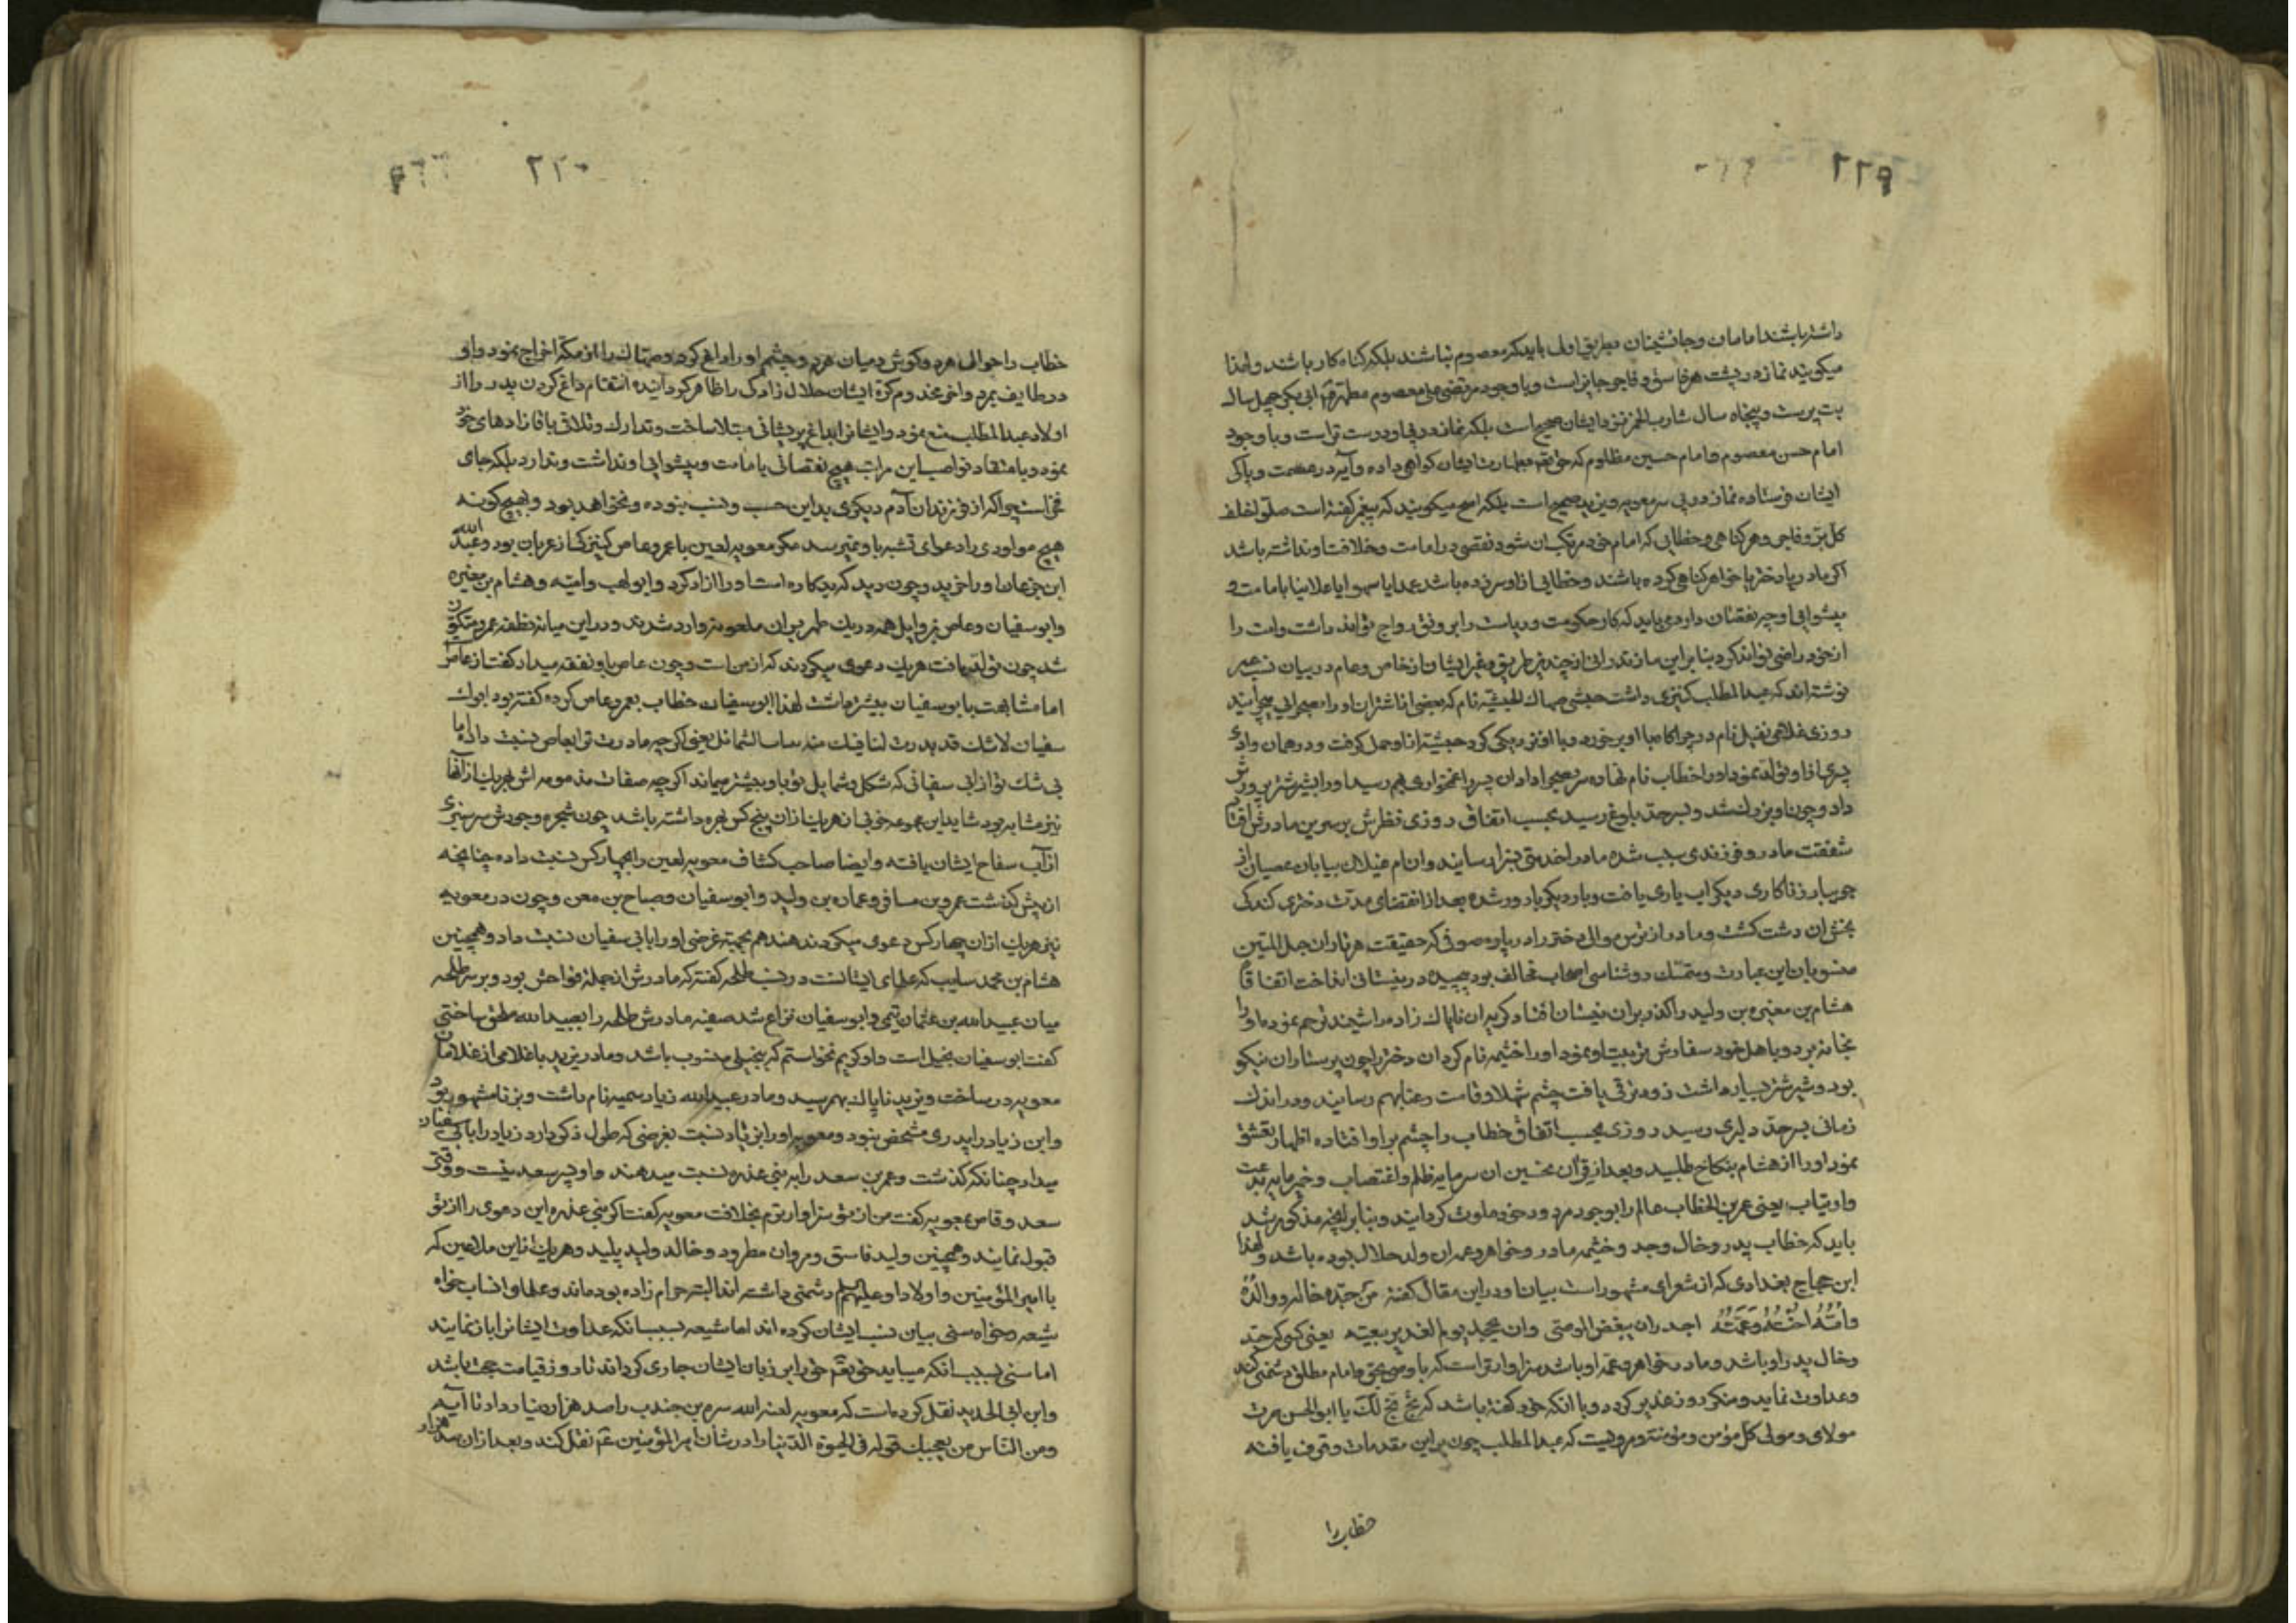 ٢٢٩
داشته باشند امامان و جانشینان بطریق اولی باید که معصوم نباشند بلکه کناه کار باشند و لهذا
میکویند نماز در پشت هر فاسق و فاجر جایز است و با وجود مرتضی علی معصوم مطهر ابی بکر چهل ساله
بت پرست و پنجاه سال شارب الخمر نزد ایشان صحیح است بلکه نماز در پی او درست تر است و با وجود
امام حسن معصوم و امام حسین مظلوم که حق تعم بطهارت ایشان کواهی داده و آیه در عصمت و پاکی
ایشان فرستاده نماز در پی سر معویه و یزید صحیح است بلکه اصح میکویند که پیغمبر کفته است صلوا خلف
کل بر و فاجر و هر کناهی و خطایی که امام خود مرتکب ان شود نقصی در امامت و خلافت او نداشته باشد
اکر مادر یا دختر یا خواهر کناهی کرده باشند و خطایی از او سر زده باشد عمدا یا سهوا یا علانیا بامامت و
پیشوایی او چه نقصان دارد می باید که کار حکومت و ریاست را بر ونق رواج تواند داشت و امت را
از خود راضی تواند کرد بنابر این مازندرانی از چند طریق و غیر ایشان از خاص و عام در بیان نسب عمر
نوشته اند که عبد المطلب کنیزی داشت حبشی صهاک الحبشیه نام که بعضی اناث شتران او را بصحرا می چرانید
روزی غلامی نفیل نام در چراکاه با او برخورد و با او نزدیکی کرد حبشیه از او حمل کرفت و در همان وادی
پسری از او تولد نمود او را خطاب نام نهاده
داد و چون او بزرک شد و بسر حد بلوغ رسید بحسب اتفاق روزی نظرش بر سرین مادرش افتاد
شفقت مادر و فرزندی سبب شده مادر را خدمتی بسزا رسانید و ان ام غیلان بیابان عصیان از
جویبار زناکاری دیکر اب یاری یافت و بار دیکر بارور شده بعد از انقضای مدت دختری کندکی
بخش ان دشت کشت و مادر از ترس موالی دختر را در پاره صوفی که حقیقت هر تار ان حبل المتین
منسوبان این عبارت و متمسک روشناسی اصحاب مخالف بود پیچیده در نیستانی انداخت اتفاقا
هشام بن مغیره بن ولید را کذر بران نیستان افتاد کریه ان ناپاک زاده را شنید ترحم نموده او را
بخانه برد و باهل خود سفارش تربیت او نمود او را ختیمه نام کرد ان دختر را چون پرستاران نیکو
بود و شیر شتر بسیار داشت زود ترقی یافت چشم شهلا و قامت رعنا بهم رسانید و در اندک
زمانی بسر حد دلبری رسید روزی بحسب اتفاق خطاب را چشم بر او افتاده اظهار تعشق
نمود او را از هشام بنکاح طلبید و بعد از قران نحسین ان سرمایه ظلم و اغتصاب و خمیر مایه بدعت
و ارتیاب یعنی عمر بن الخطاب عالم را بوجود مردود خود ملوث کردانید و بنابر انچه مذکور شد
باید که خطاب پدر و خال وجد و ختیمه مادر و خواهر و عمه ان ولد حلال بوده باشد و لهذا
ابن حجاج بغدادی که از شعرای مشهور است بیان او در این مقال کفته من جده خاله و والده
و امه اخته و عمته اجدر ان یبغض الوصی وان یجحد یوم الغدیر بیعته یعنی کسی که جد
و خال پدر او باشد و مادر خواهر و عمه او باشد سزاوارتر است که با وصی بحق و امام مطلق دشمنی کند
و عداوت نماید و منکر روز غدیر کردد و با انکه خود کفته باشد که بخ بخ لک یا ابو الحسن صرت
مولای و مولی کل مؤمن و مؤمنه و مرویست که عبد المطلب چون بر این مقدمات وقوف یافته
خطاب را
٢٢٠
خطاب را حوالی هر دو کوش و میان هر دو چشم او را داغ کرد و صهاک را از مکه اخراج نمود و او
در طایف بمرد و اخر مخدوم کرة ایشان حلال زادکی را ظاهر کردانیده انتقام داغ کردن پدر را از
اولاد عبد المطلب منع نمود و ایشان را بداغ پریشانی مبتلا ساخت و تدارک و تلافی باقازادهای خود
نمود و باعتقاد نواصب این مراتب هیچ نقصانی بامامت و پیشوایی او نداشت و ندارد بلکه جای
فخر است چرا که از فرزندان آدم دیکری بداین حسب و نسب نبوده و نخواهد بود و بهیچ کونه
هیچ مولودی را دعوای تشبه باو نمیرسد مکر معویه لعین با عمرو عاص کنیزکی از عربان بود و عبد الله
ابن جذعان او را خرید و چون دید که بدکاره است او را ازاد کرد و ابو لهب و امیه و هشام بن مغیره
و ابو سفیان و عاص بن وایل همه در یک طهر بران ملعونه وارد شدند و در این میانه نطفه عمرو متکون
شد چون تولد یافت هر یک دعوی میکردند که از من است و چون عاص باو نفقه میداد کفت از عاص
اما مشابهت بابو سفیان بیشتر داشت لهذا ابو سفیان خطاب بعمرو عاص کرده کفته بود ابوک
سفیان لا شک قد بدت لنا فیک منه الشمائل یعنی اکر چه مادرت ترا بعاص نسبت داده اما
بی شک تو از ابی سفیانی که شکل و شمایل تو باو بیشتر میماند اکر چه صفات مذمومه اش بهر یک از انها
نیز مشابه بود شاید این مجموعه خوبی از هر یک ازان پنج کس بهره داشته باشد چون شجره وجودش سرسبزی
از آب سفاح ایشان یافته و ایضا صاحب کشاف معویه لعین را بچهار کس نسبت داده چنانچه
از پیش کذشت عمرو بن مسافر و عماره بن ولید و ابو سفیان و صباح بن معن و چون در معویه
نیز هر یک ازان چهار کس دعوی میکردند هند هم بجهة غرضی او را بابی سفیان نسبت داد و همچنین
هشام بن محمد سایب که علمای ایشانست در نسب طلحه کفته که مادرش از جمله فواحش بود و بر سر طلحه
میان عبید الله بن عثمان تیمی و ابو سفیان نزاع شد صفیه مادرش طلحه را بعبید الله ملحق ساختی
کفت ابو سفیان بخیل است و او کریم نخواستم که ببخیلی منسوب باشد و مادر یزید با غلامی از غلامان
معویه در ساخت و یزید ناپاک بهم رسید و مادر عبید الله زیاد سمیه نام داشت و بزنا مشهور بود
و ابن زیاد را پدری مشخص نبود و معویه او را ابن زیاد نسبت بغرضی که طول ذکر دارد زیاد را بابی سفیان
میداد چنانکه کذشت و عمر بن سعد را به بنی عذره نسبت میدهند و او پسر سعد نیست و وقتی
سعد وقاص بمعویه کفت من از تو سزاوارترم بخلافت معویه کفت اکر بنی عذره این دعوی را از تو
قبول نمایند و همچنین ولید فاسق و مروان مطرود و خالد ولید پلید و هر یک از این ملاعین که
با امیر المؤمنین و اولاد او علیهم السلم دشمنی داشته اند البته حرام زاده بوده اند و علما و انساب خواه
شیعه و خواه سنی بیان نسب ایشان کرده اند اما شیعه بسبب انکه عداوت ایشان را باز نمایند
اما سنی بسبب انکه میباید حق تعم حق را بر زبان ایشان جاری کرداند تا روز قیامت حجت باشد
و ابن ابی الحدید نقل کرده است که معویه لعنه الله سمره بن جندب را صد هزار دینار داد تا آیه
و من الناس من یعجبک قوله فی الحیوة الدنیا را در شان امیر المؤمنین عم نقل کند و بعد ازان سه هزار